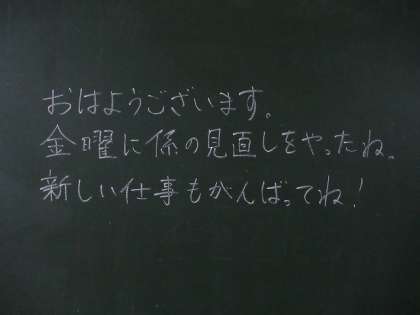 おはようございます。
金曜に係の見直しをやったね。
新しい仕事もがんばってね!